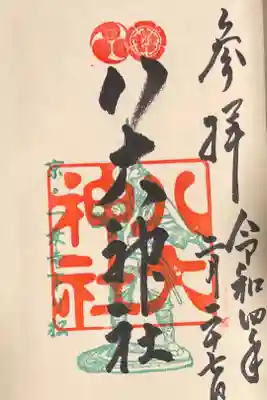 参拝
令和四年
二月二十七日
八大神社
八大
神社
京・一乗寺